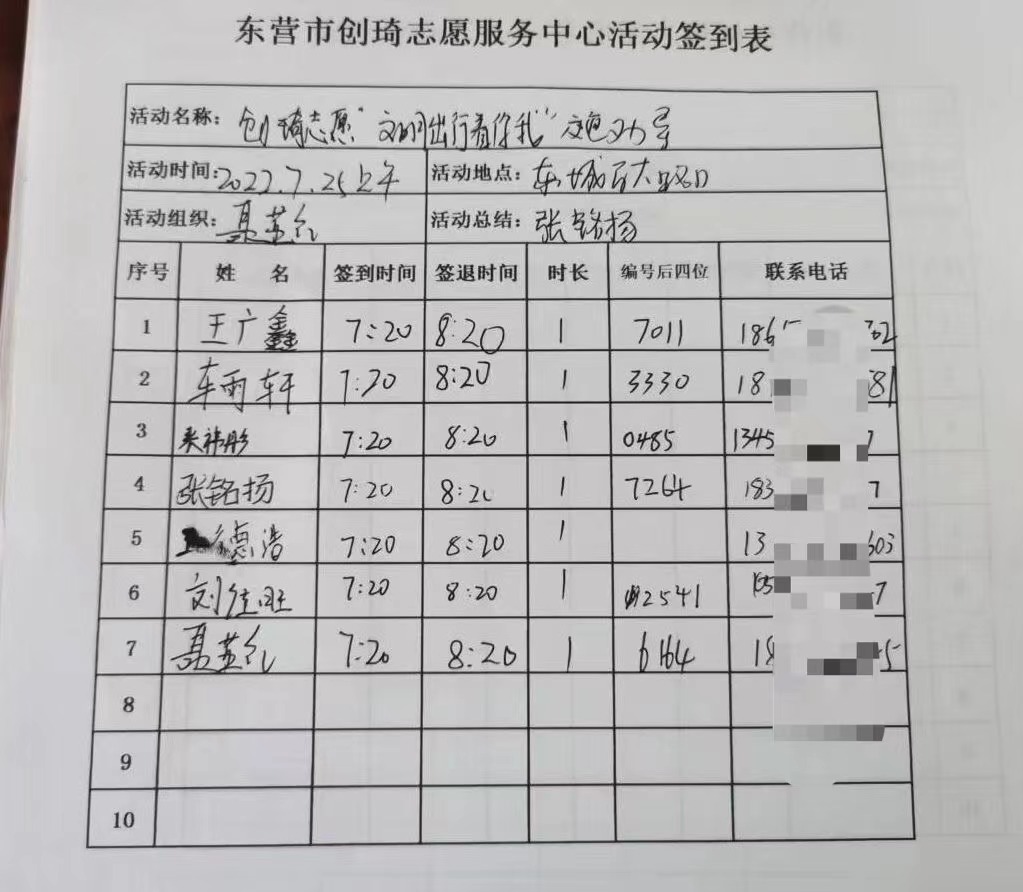 东营市创琦志愿服务中心活动签到表
活动名称: 创琦志愿“文明出行看你我”交通劝导
活动时间: 2022.7.25上午 活动地点: 东城 路口
活动组织: 聂英红 活动总结: 张铭扬
序号 姓名 签到时间 签退时间 时长 编号后四位 联系电话
1 王广鑫 7:20 8:20 1 7011 186
2 车雨轩 7:20 8:20 1 3330 18 81
3 7:20 8:20 1 0485 1345 7
4 张铭扬 7:20 8:20 1 7264 183 7
5 德浩 7:20 8:20 1 13 603
6 刘佳旺 7:20 8:20 1 2541 7
7 聂英红 7:20 8:20 1 6164 18 5
8
9
10